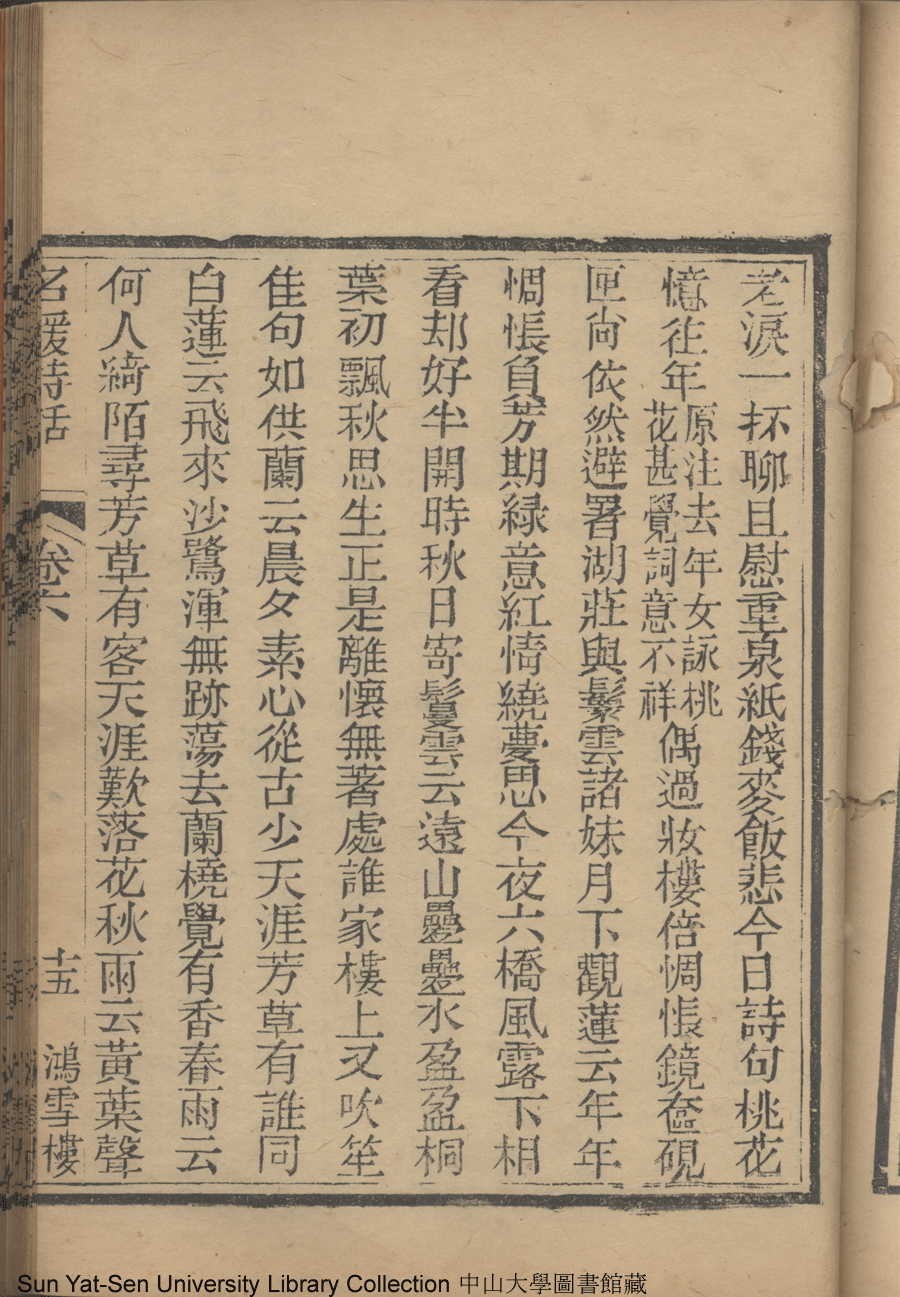 老淚一抔聊且慰重泉紙錢麥飯悲今日詩句桃花
憶往年原注去年女詠桃花甚覺詞意不祥偶過妝樓倍惆悵鏡奩硯
匣尚依然避署湖莊與鬘雲諸妹月下觀蓮云年年
惆悵負芳期緑意紅情繞夢思今夜六橋風露下相
看却好半開時秋日寄鬘雲云遠山疊疊水盈盈桐
葉初飄秋思生正是離懷無著處誰家樓上又吹笙
佳句如供蘭云晨夕素心從古少天涯芳草有誰同
白蓮云飛來沙鷺渾無跡蕩去蘭橈覺有香春雨云
何人綺陌尋芳草有客天涯歎落花秋雨云黃葉聲
名媛詩話 卷六 十五 鴻雪樓
Sun Yat-Sen University Library Collection 中山大學圖書館藏